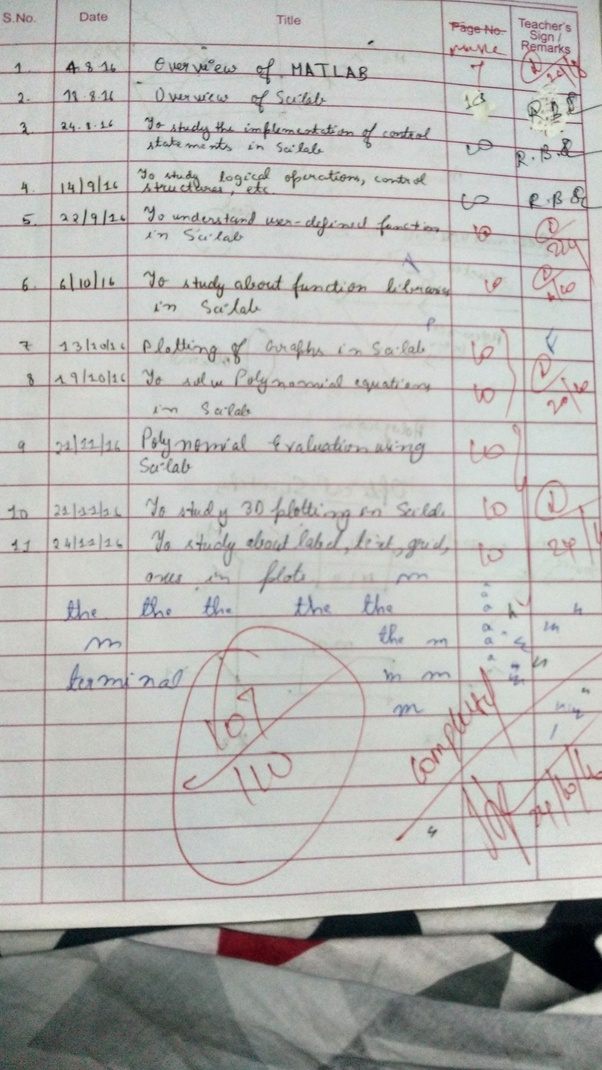 S.No. Date Title Page No. Teacher's Sign / Remarks
1. 4.8.16 Overview of MATLAB 7
2. 11.8.16 Overview of Scilab 10
3. 24.8.16 To study the implementation of control
statements in Scilab 10 R.B.S
4. 14/9/16 To study logical operations, control
structures etc 10 R.B.S
5. 22/9/16 To understand user-defined function
in Scilab 10
A
6. 6/10/16 To study about function libraries 10
in Scilab
P
7 13/10/16 Plotting of Graphs in Scilab 10
8 19/10/16 To solve Polynomial equations 10
in Scilab
9 21/11/16 Polynomial Evaluation using 10
Scilab
10 21/11/16 To study 3D plotting in Scilab 10
11 24/11/16 To study about label, text, grid, 10
axes in plots m
the the the the the the
m the m
terminal m m
m
107
110
completed